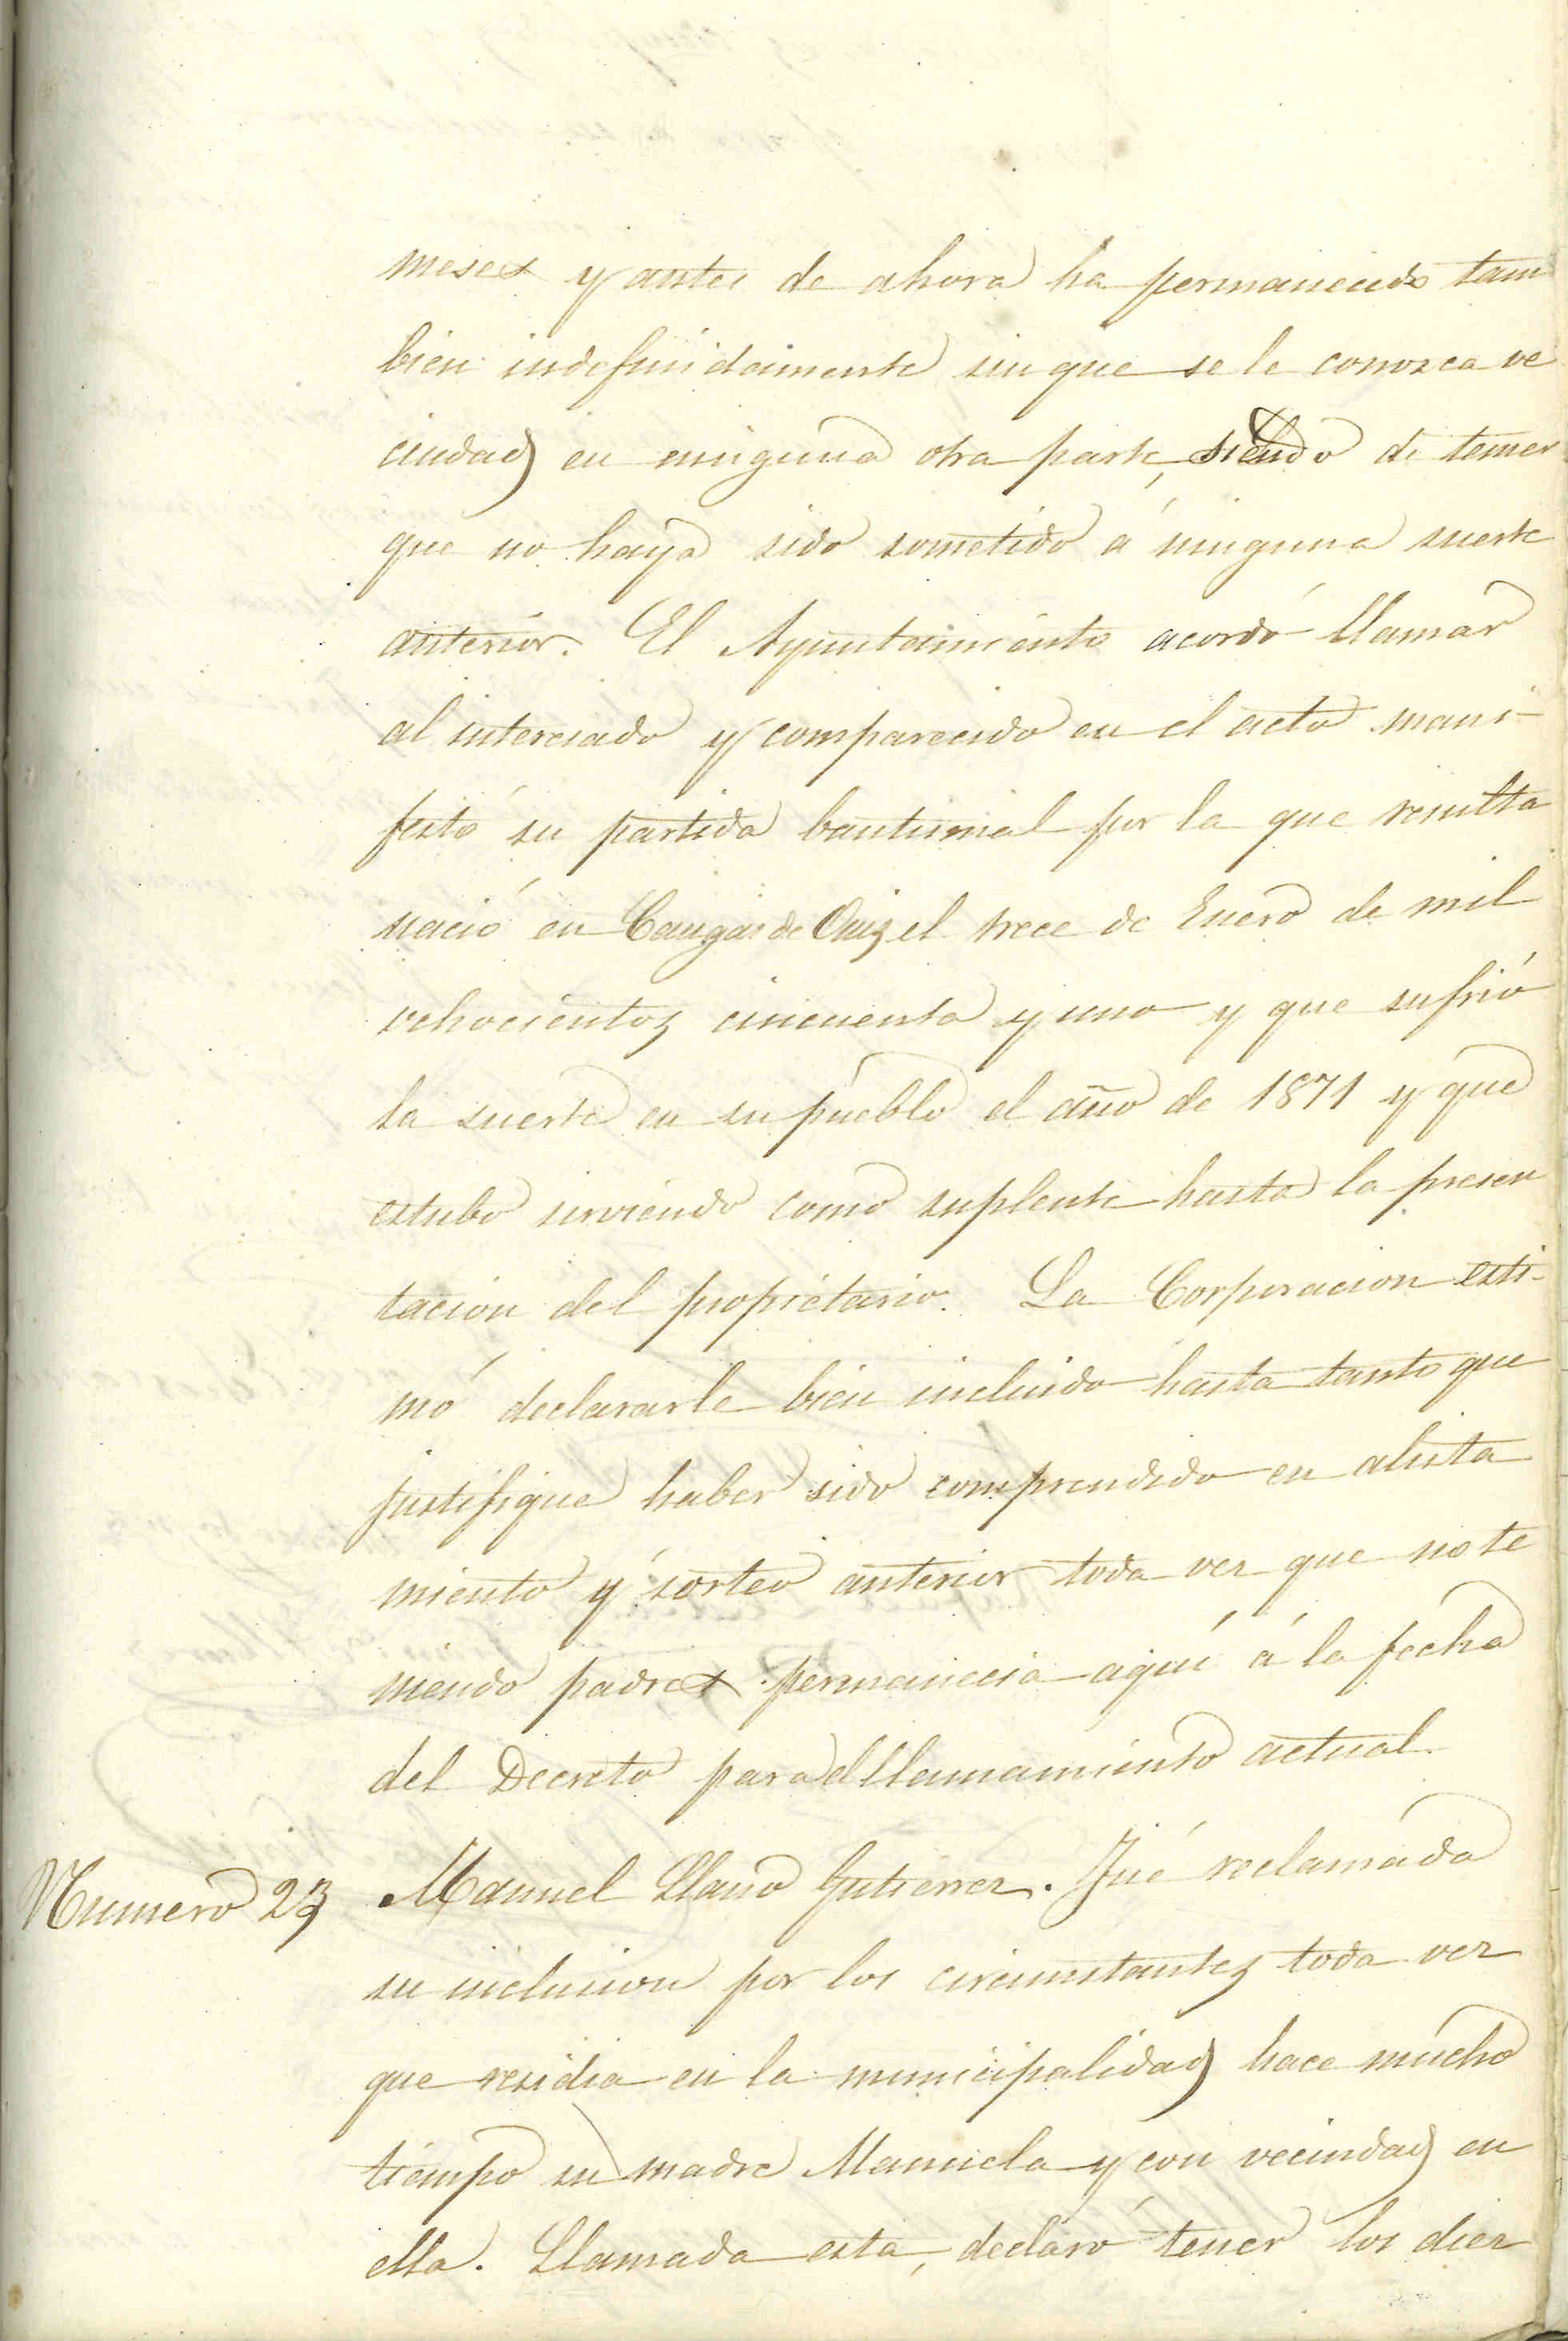 meses y antes de ahora ha permanecido tam
bien indefinidamente sin que se le conozca ve
cindad en ninguna otra parte, siendo de temer
que no haya sido sometido á ninguna suerte
anterior. El Ayuntamiento acordó llamar
al interesado y comparecido en el acto mani-
festó su partida bautismal por la que resulta
nació en Cangas de Onis el trece de Enero de mil
ochocientos cincuenta y uno y que sufrió
la suerte en su pueblo el año de 1871 y que
estubo sirviendo como suplente hasta la presen
tacion del propietario. La Corporacion esti-
mó declararle bien incluido hasta tanto que
justifique haber sido comprendido en alista
miento y sorteo anterior toda vez que no te
niendo padres permanecia aquí á la fecha
del Decreto para el llamamiento actual.
Numero 23 Manuel Llano Gutierrez. Fué reclamada
su inclusion por los circunstantes toda vez
que residia en la municipalidad hace mucho
tiempo su madre Manuela y con vecindad en
ella. Llamada esta, declaró tener los diez